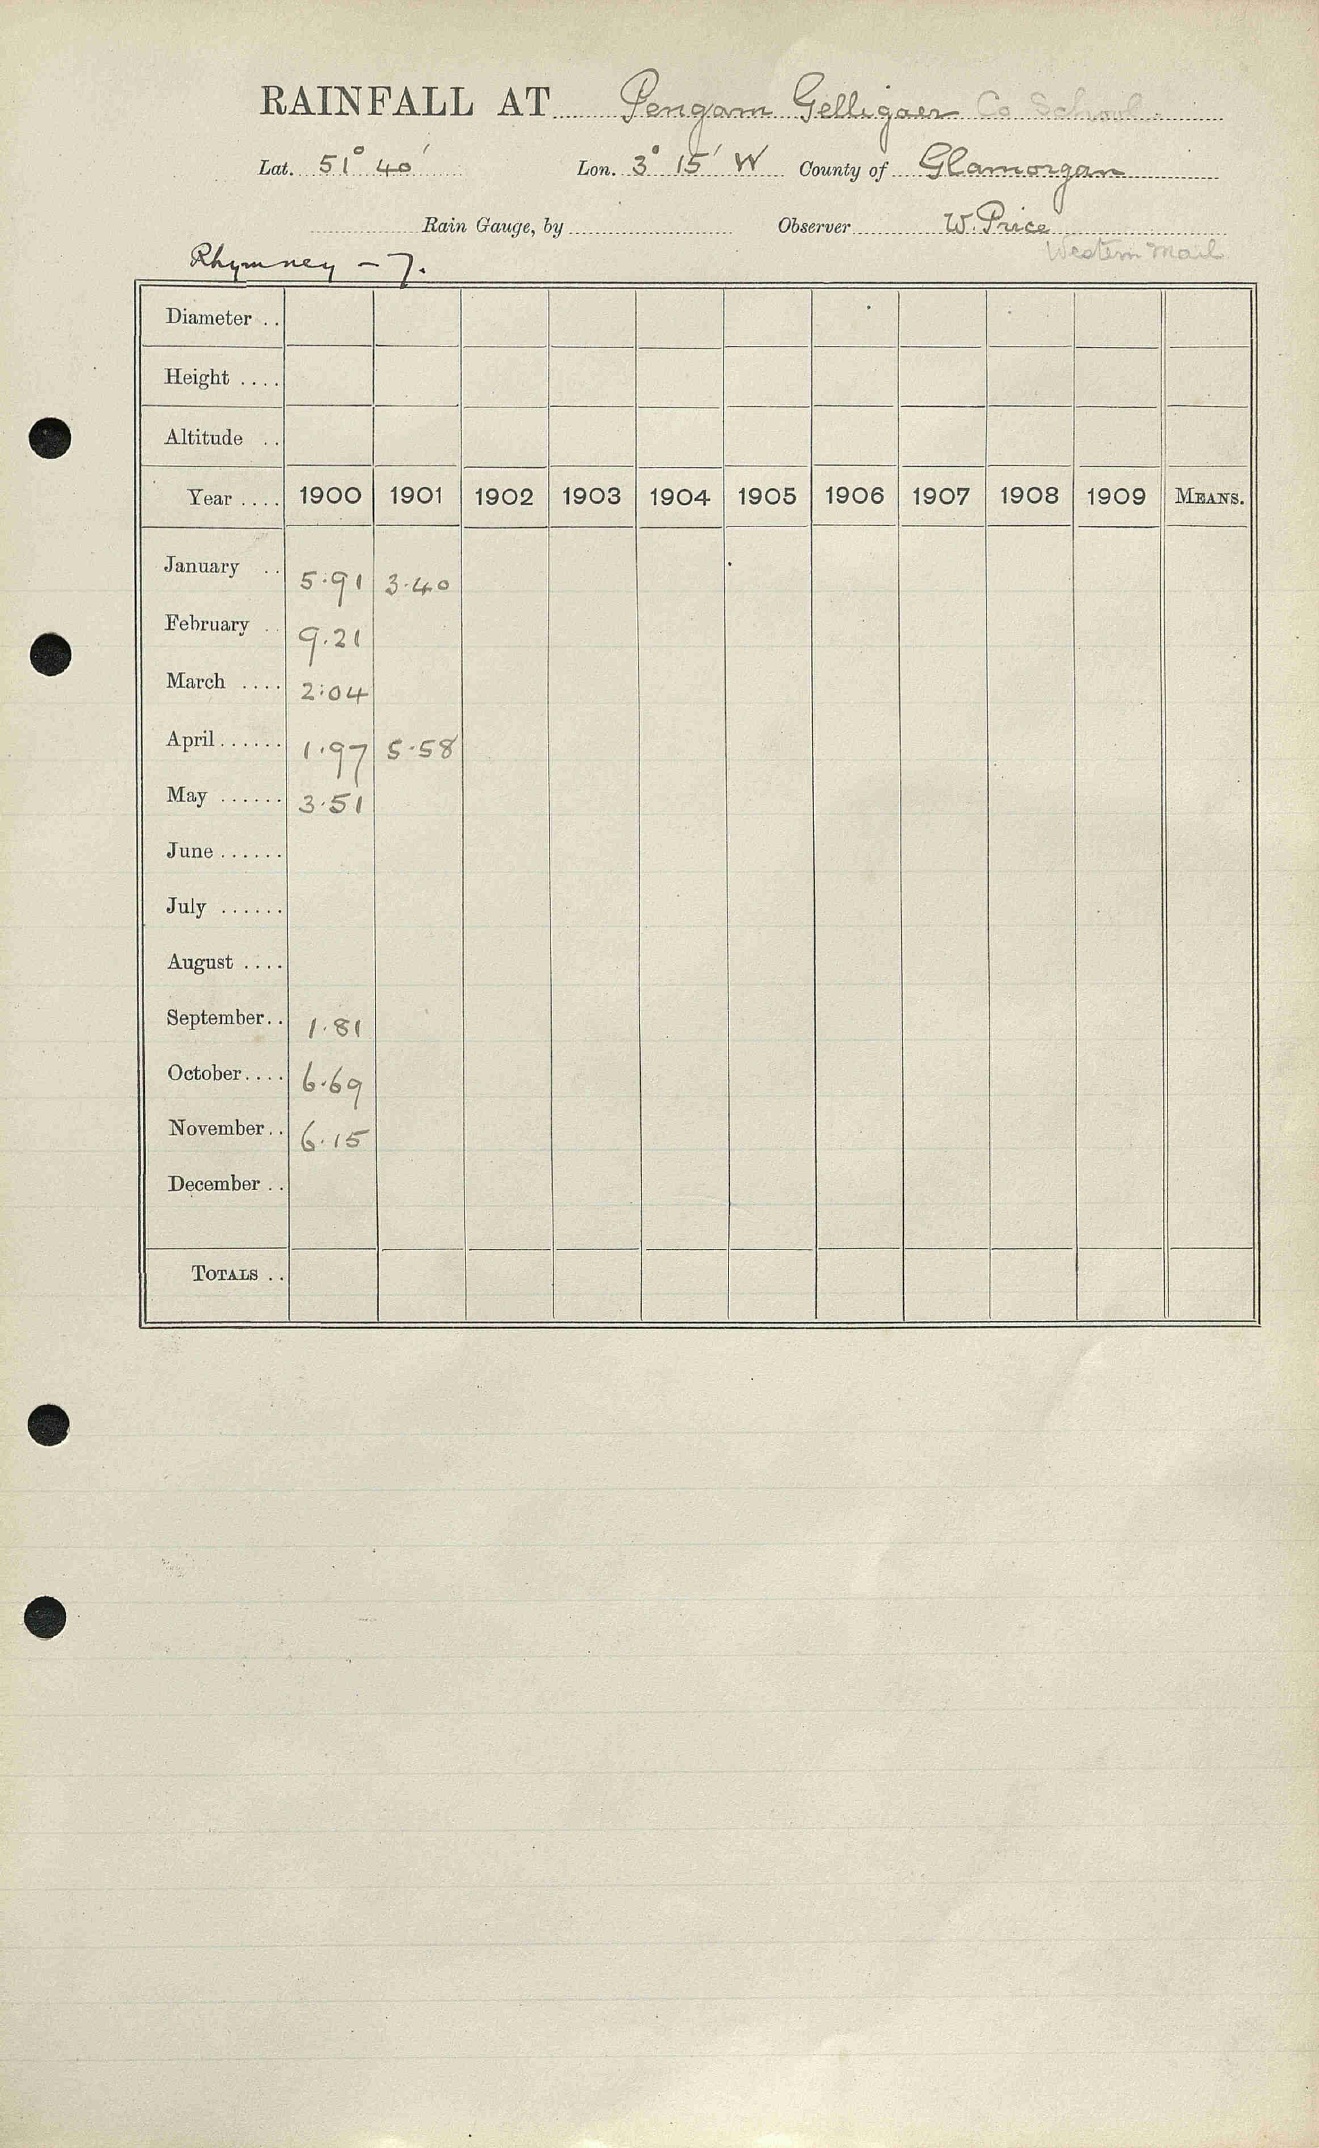 RAINFALL AT Pengam Gelligaer Co School.
Lat. 51° 40′ Lon. 3° 15′ W County of Glamorgan
Rain Gauge, by Observer W. Price
Western Mail
Rhymney – 7.
Diameter ..
Height ....
Altitude ..
Year .... 1900 1901 1902 1903 1904 1905 1906 1907 1908 1909 MEANS.
January .. 5.91 3.40
February .. 9.21
March .... 2.04
April ...... 1.97 5.58
May ...... 3.51
June ......
July ......
August ....
September .. 1.81
October .... 6.69
November .. 6.15
December ..
TOTALS ..